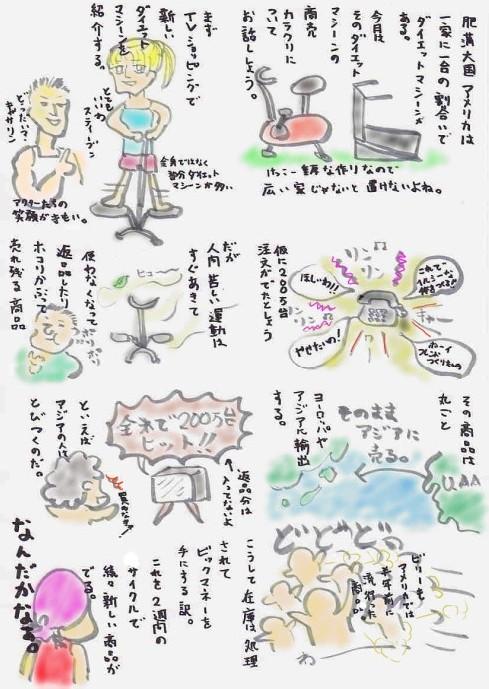 肥満大国アメリカは
一家に一台の割合いで
ダイエットマシーンが
ある。
今月は
そのダイエット
マシーンの
商売
カラクリに
ついて
お話しよう。
けっこー華奢な作りなので
広い家じゃないと置けないよね。
まず
TVショッピングで
新しい
ダイエット
マシーンを
紹介する。
とても
いいわ
スティーブン
どうだい?
キャサリン
全身ではなく
部分ダイエット
マシーンが多い
アクターたちの
笑顔がきもい。
仮に200万台
注文がでたとしよう
リンリン
リンリン
ほしいわ!!
これで
ヘルシーな
体をつくるぞ
やせたいの!
キャー
ボーイ
フレンド
つくりたいの
だが
人間 苦しい運動は
すぐあきて
ヒュー
使わなくなって
返品したり
ホコリかぶって
売れ残る商品
ボリ
ボリ
その商品は
丸ごと
ヨーロッパや
アジアに輸出
する。
そのまま
アジアに
売る。
USA
全米で200万台
ヒット!!
返品分は
入ってないよ
といえば
アジアの人は
とびつくのだ。
買わなきゃ!
どどどどっ
ビリーも
アメリカでは
数年前に
流行った
商品。
わー
こうして在庫は処理
されて
ビックマネーを
手にする訳。
これを2週間の
サイクルで
続々新しい商品が
でる。
なんだかなぁ。